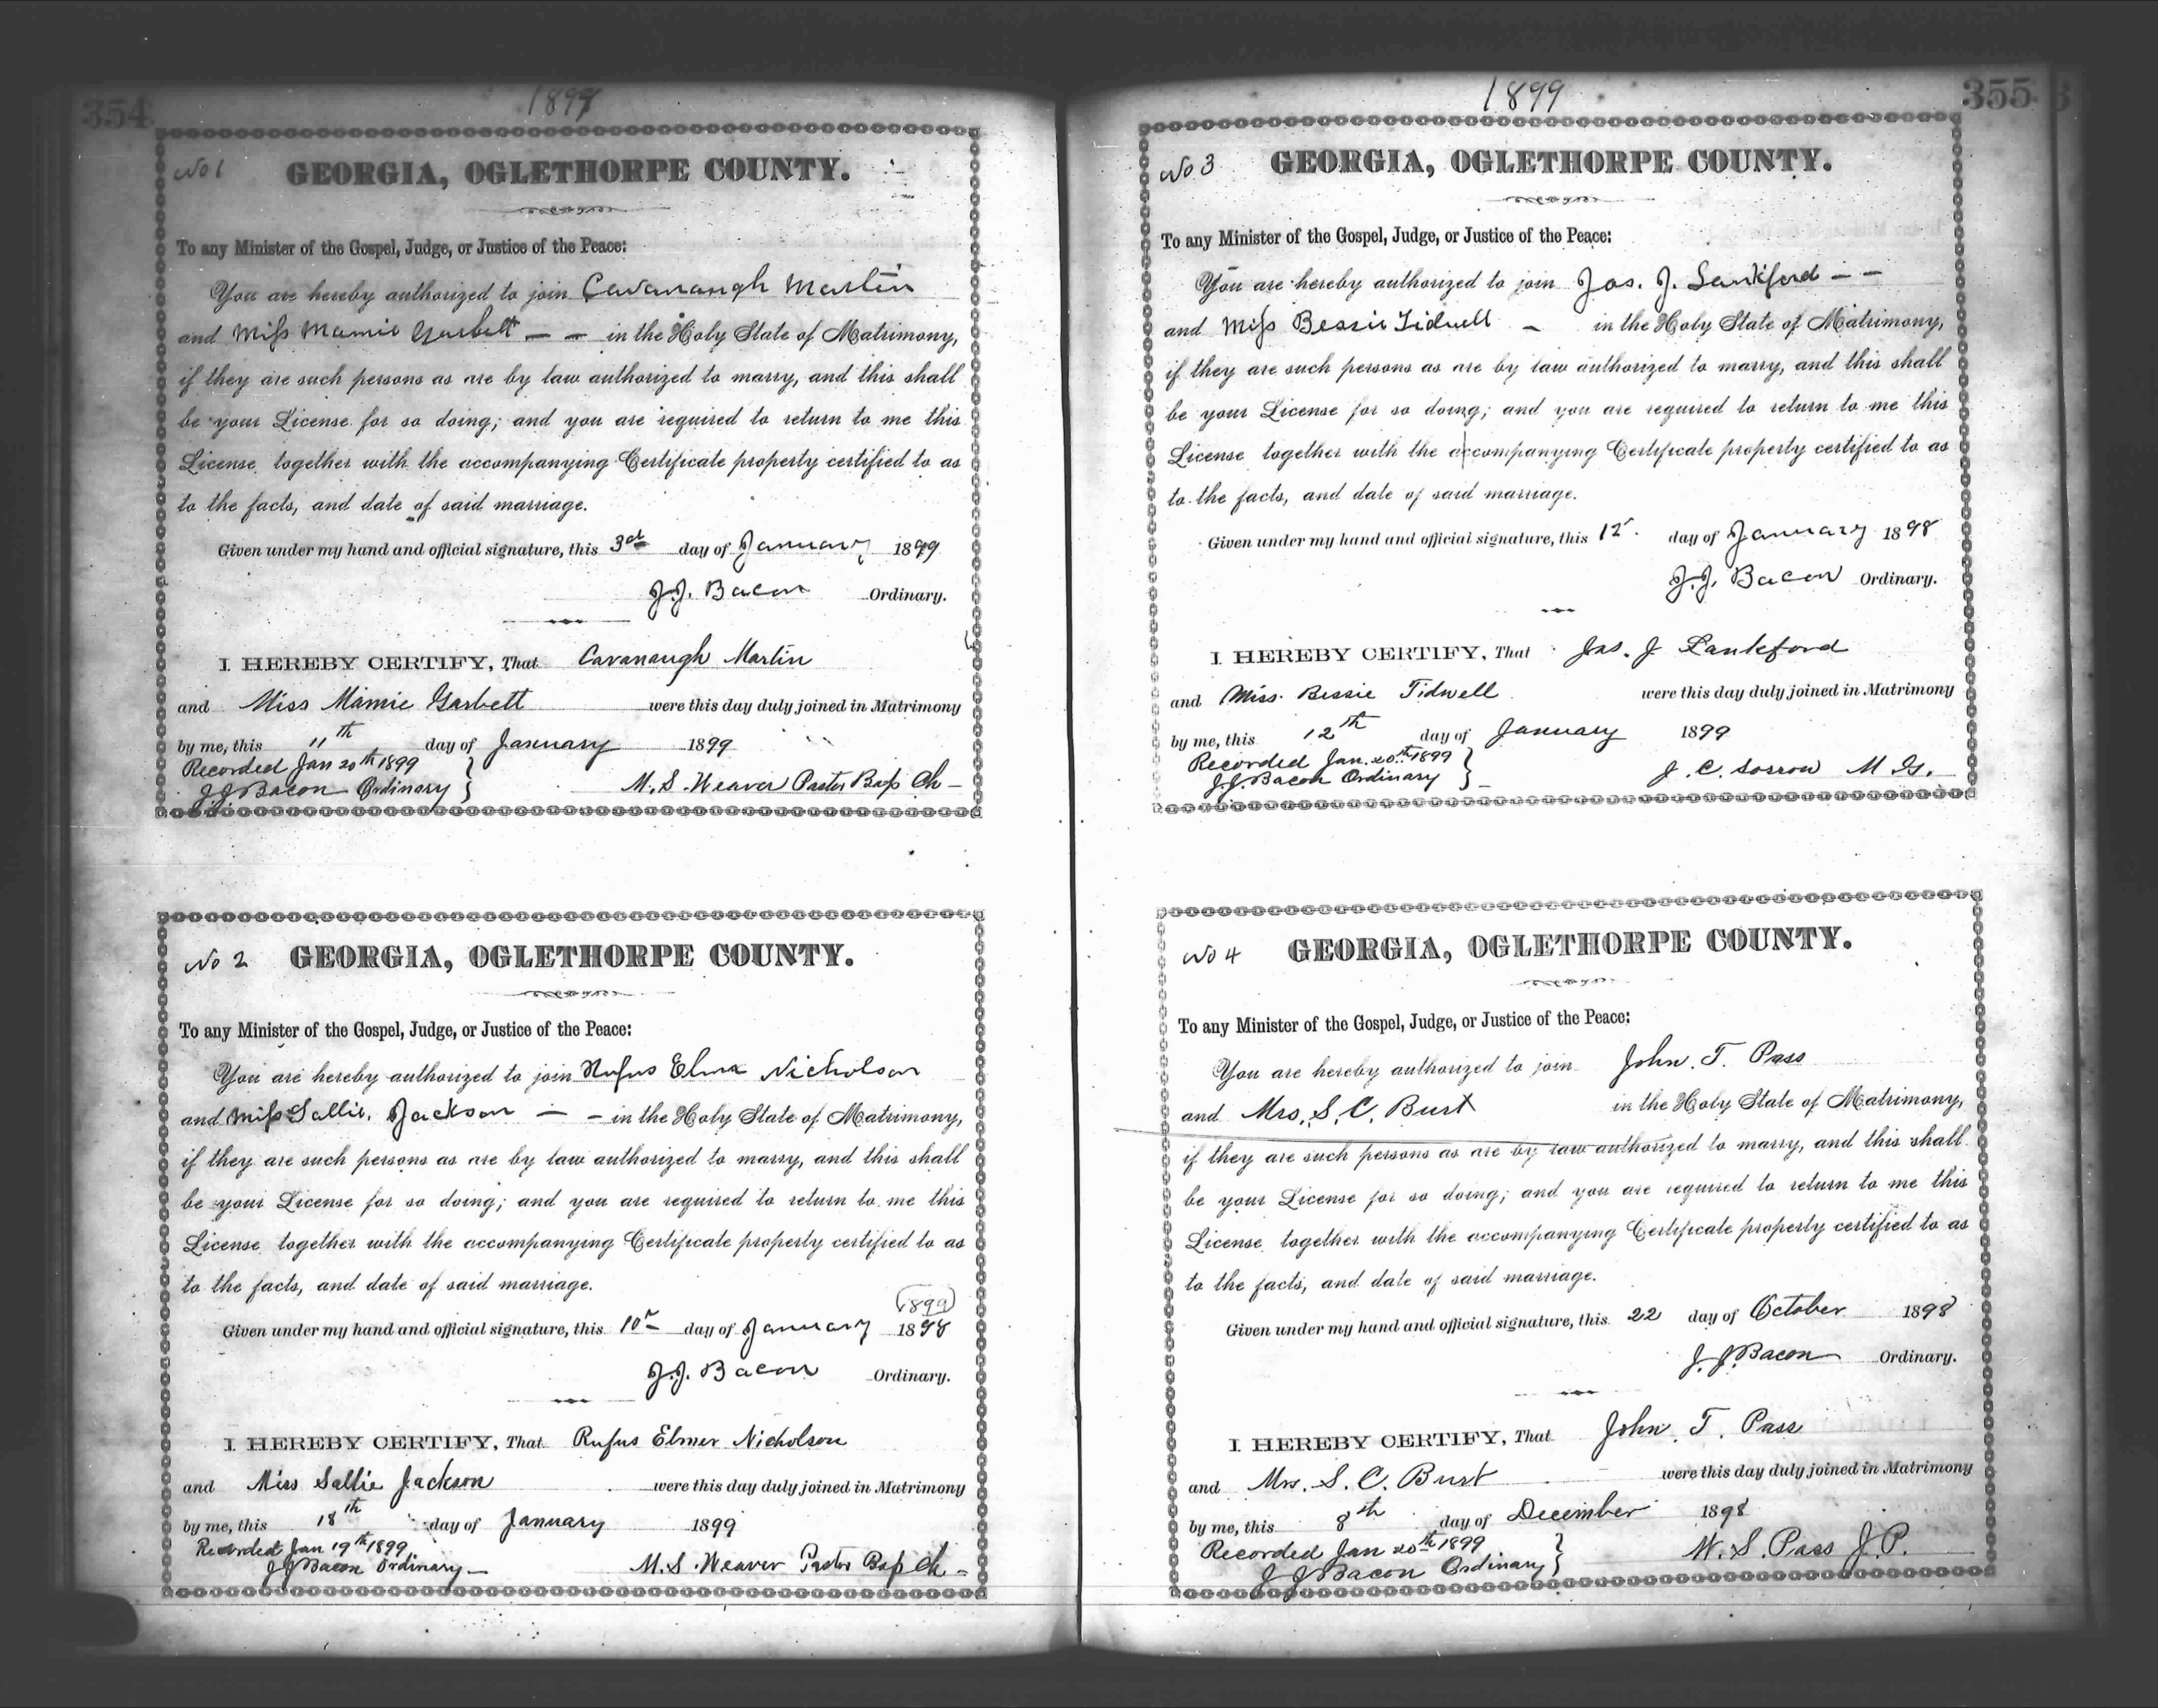 354
1899
No 1
GEORGIA, OGLETHORPE COUNTY.
To any Minister of the Gospel, Judge, or Justice of the Peace:
You are hereby authorized to join Cavanaugh Martin
and Miss Mamie Garbett — — in the Holy State of Matrimony,
if they are such persons as are by law authorized to marry, and this shall
be your License for so doing; and you are required to return to me this
License together with the accompanying Certificate property certified to as
to the facts, and date of said marriage.
Given under my hand and official signature, this 3rd day of January 1899
J.J. Bacon Ordinary.
I HEREBY CERTIFY, That Cavanaugh Martin
and Miss Mamie Garbett were this day duly joined in Matrimony
by me, this 11th day of January 1899
Recorded Jan 20th 1899
J J Bacon Ordinary
M. S. Weaver Pastor Bap Ch —
No 2
GEORGIA, OGLETHORPE COUNTY.
To any Minister of the Gospel, Judge, or Justice of the Peace:
You are hereby authorized to join Rufus Elma Nicholson
and Miss Sallie Jackson — — in the Holy State of Matrimony,
if they are such persons as are by law authorized to marry, and this shall
be your License for so doing; and you are required to return to me this
License together with the accompanying Certificate property certified to as
to the facts, and date of said marriage.
(1899)
Given under my hand and official signature, this 10 day of January 1898
J.J. Bacon Ordinary.
I HEREBY CERTIFY, That Rufus Elmer Nicholson
and Miss Sallie Jackson were this day duly joined in Matrimony
by me, this 18th day of January 1899
Recorded Jan 19th 1899
J J Bacon Ordinary —
M. S. Weaver Pastor Bap Ch —
1899
355
No 3
GEORGIA, OGLETHORPE COUNTY.
To any Minister of the Gospel, Judge, or Justice of the Peace:
You are hereby authorized to join Jas. J. Lankford — —
and Miss Bessie Tidwell — in the Holy State of Matrimony,
if they are such persons as are by law authorized to marry, and this shall
be your License for so doing; and you are required to return to me this
License together with the accompanying Certificate property certified to as
to the facts, and date of said marriage.
Given under my hand and official signature, this 12 day of January 1898
J.J. Bacon Ordinary.
I HEREBY CERTIFY, That Jas. J Lankford
and Miss Bessie Tidwell were this day duly joined in Matrimony
by me, this 12th day of January 1899
Recorded Jan. 20th 1899
J.J. Bacon Ordinary
J. C. Sorrow M G.
No 4
GEORGIA, OGLETHORPE COUNTY.
To any Minister of the Gospel, Judge, or Justice of the Peace:
You are hereby authorized to join John. T. Pass
and Mrs. S. C. Burt in the Holy State of Matrimony,
if they are such persons as are by law authorized to marry, and this shall
be your License for so doing; and you are required to return to me this
License together with the accompanying Certificate property certified to as
to the facts, and date of said marriage.
Given under my hand and official signature, this 22 day of October 1898
J. J. Bacon Ordinary.
I HEREBY CERTIFY, That John. T. Pass
and Mrs. S. C. Burt were this day duly joined in Matrimony
by me, this 8th day of December 1898
Recorded Jan 20th 1899
J J Bacon Ordinary
W. S. Pass J. P.